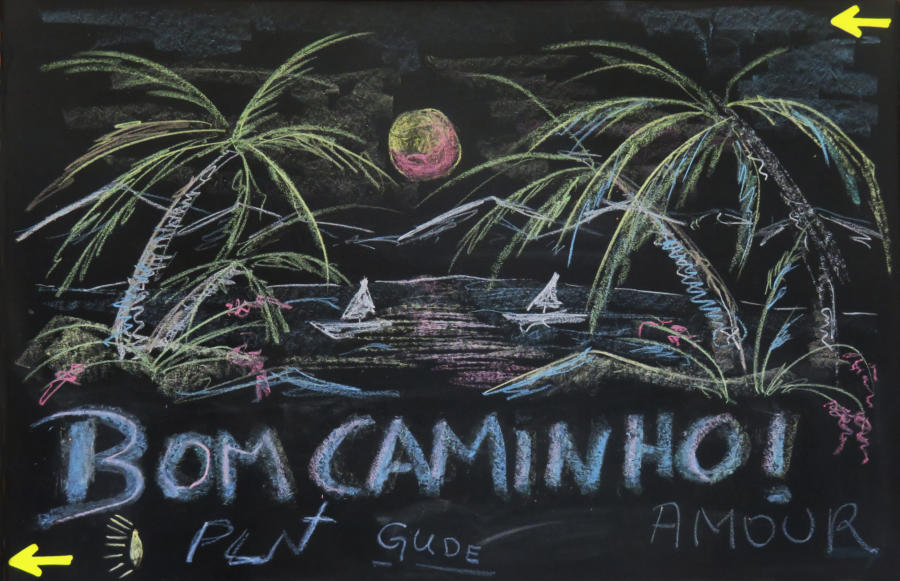 BOM CAMINHO!
GUDE AMOUR